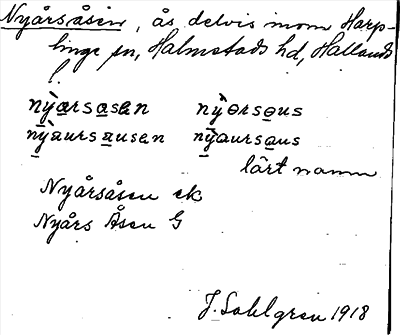 Nyårsåsen, ås delvis inom Harp-
linge sn, Halmstads hd, Hallands
l.
nỳarsasen nỳorsous
nỳaursausen nỳaursaus
lärt namn
Nyårsåsen ek
Nyårs Åsen G
J. Sahlgren 1918